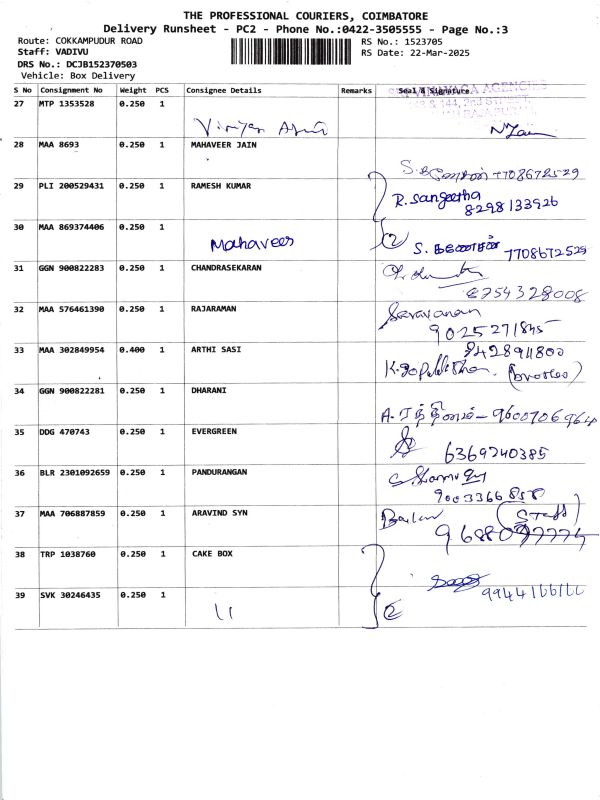 THE PROFESSIONAL COURIERS, COIMBATORE
Delivery Runsheet - PC2 - Phone No.:0422-3505555 - Page No.:3
Route: COKKAMPUDUR ROAD RS No.: 1523705
Staff: VADIVU RS Date: 22-Mar-2025
DRS No.: DCJB152370503
Vehicle: Box Delivery
S No Consignment No Weight PCS Consignee Details Remarks Seal & Signature
AGENCIES
27 MTP 1353528 0.250 1
28 MAA 8693 0.250 1 MAHAVEER JAIN
7708672529
29 PLI 200529431 0.250 1 RAMESH KUMAR
R. Sangeetha
8298133926
30 MAA 869374406 0.250 1
Mahaveer
2 7708672529
31 GGN 900822283 0.250 1 CHANDRASEKARAN
8754328008
32 MAA 576461390 0.250 1 RAJARAMAN
Saravanan
9025271845
33 MAA 302849954 0.400 1 ARTHI SASI
(brother)
34 GGN 900822281 0.250 1 DHARANI
9600706964
35 DDG 470743 0.250 1 EVERGREEN
6369740385
36 BLR 2301092659 0.250 1 PANDURANGAN
9003366858
37 MAA 706887859 0.250 1 ARAVIND SYN
(Staff)
38 TRP 1038760 0.250 1 CAKE BOX
39 SVK 30246435 0.250 1
9944166166
11
2